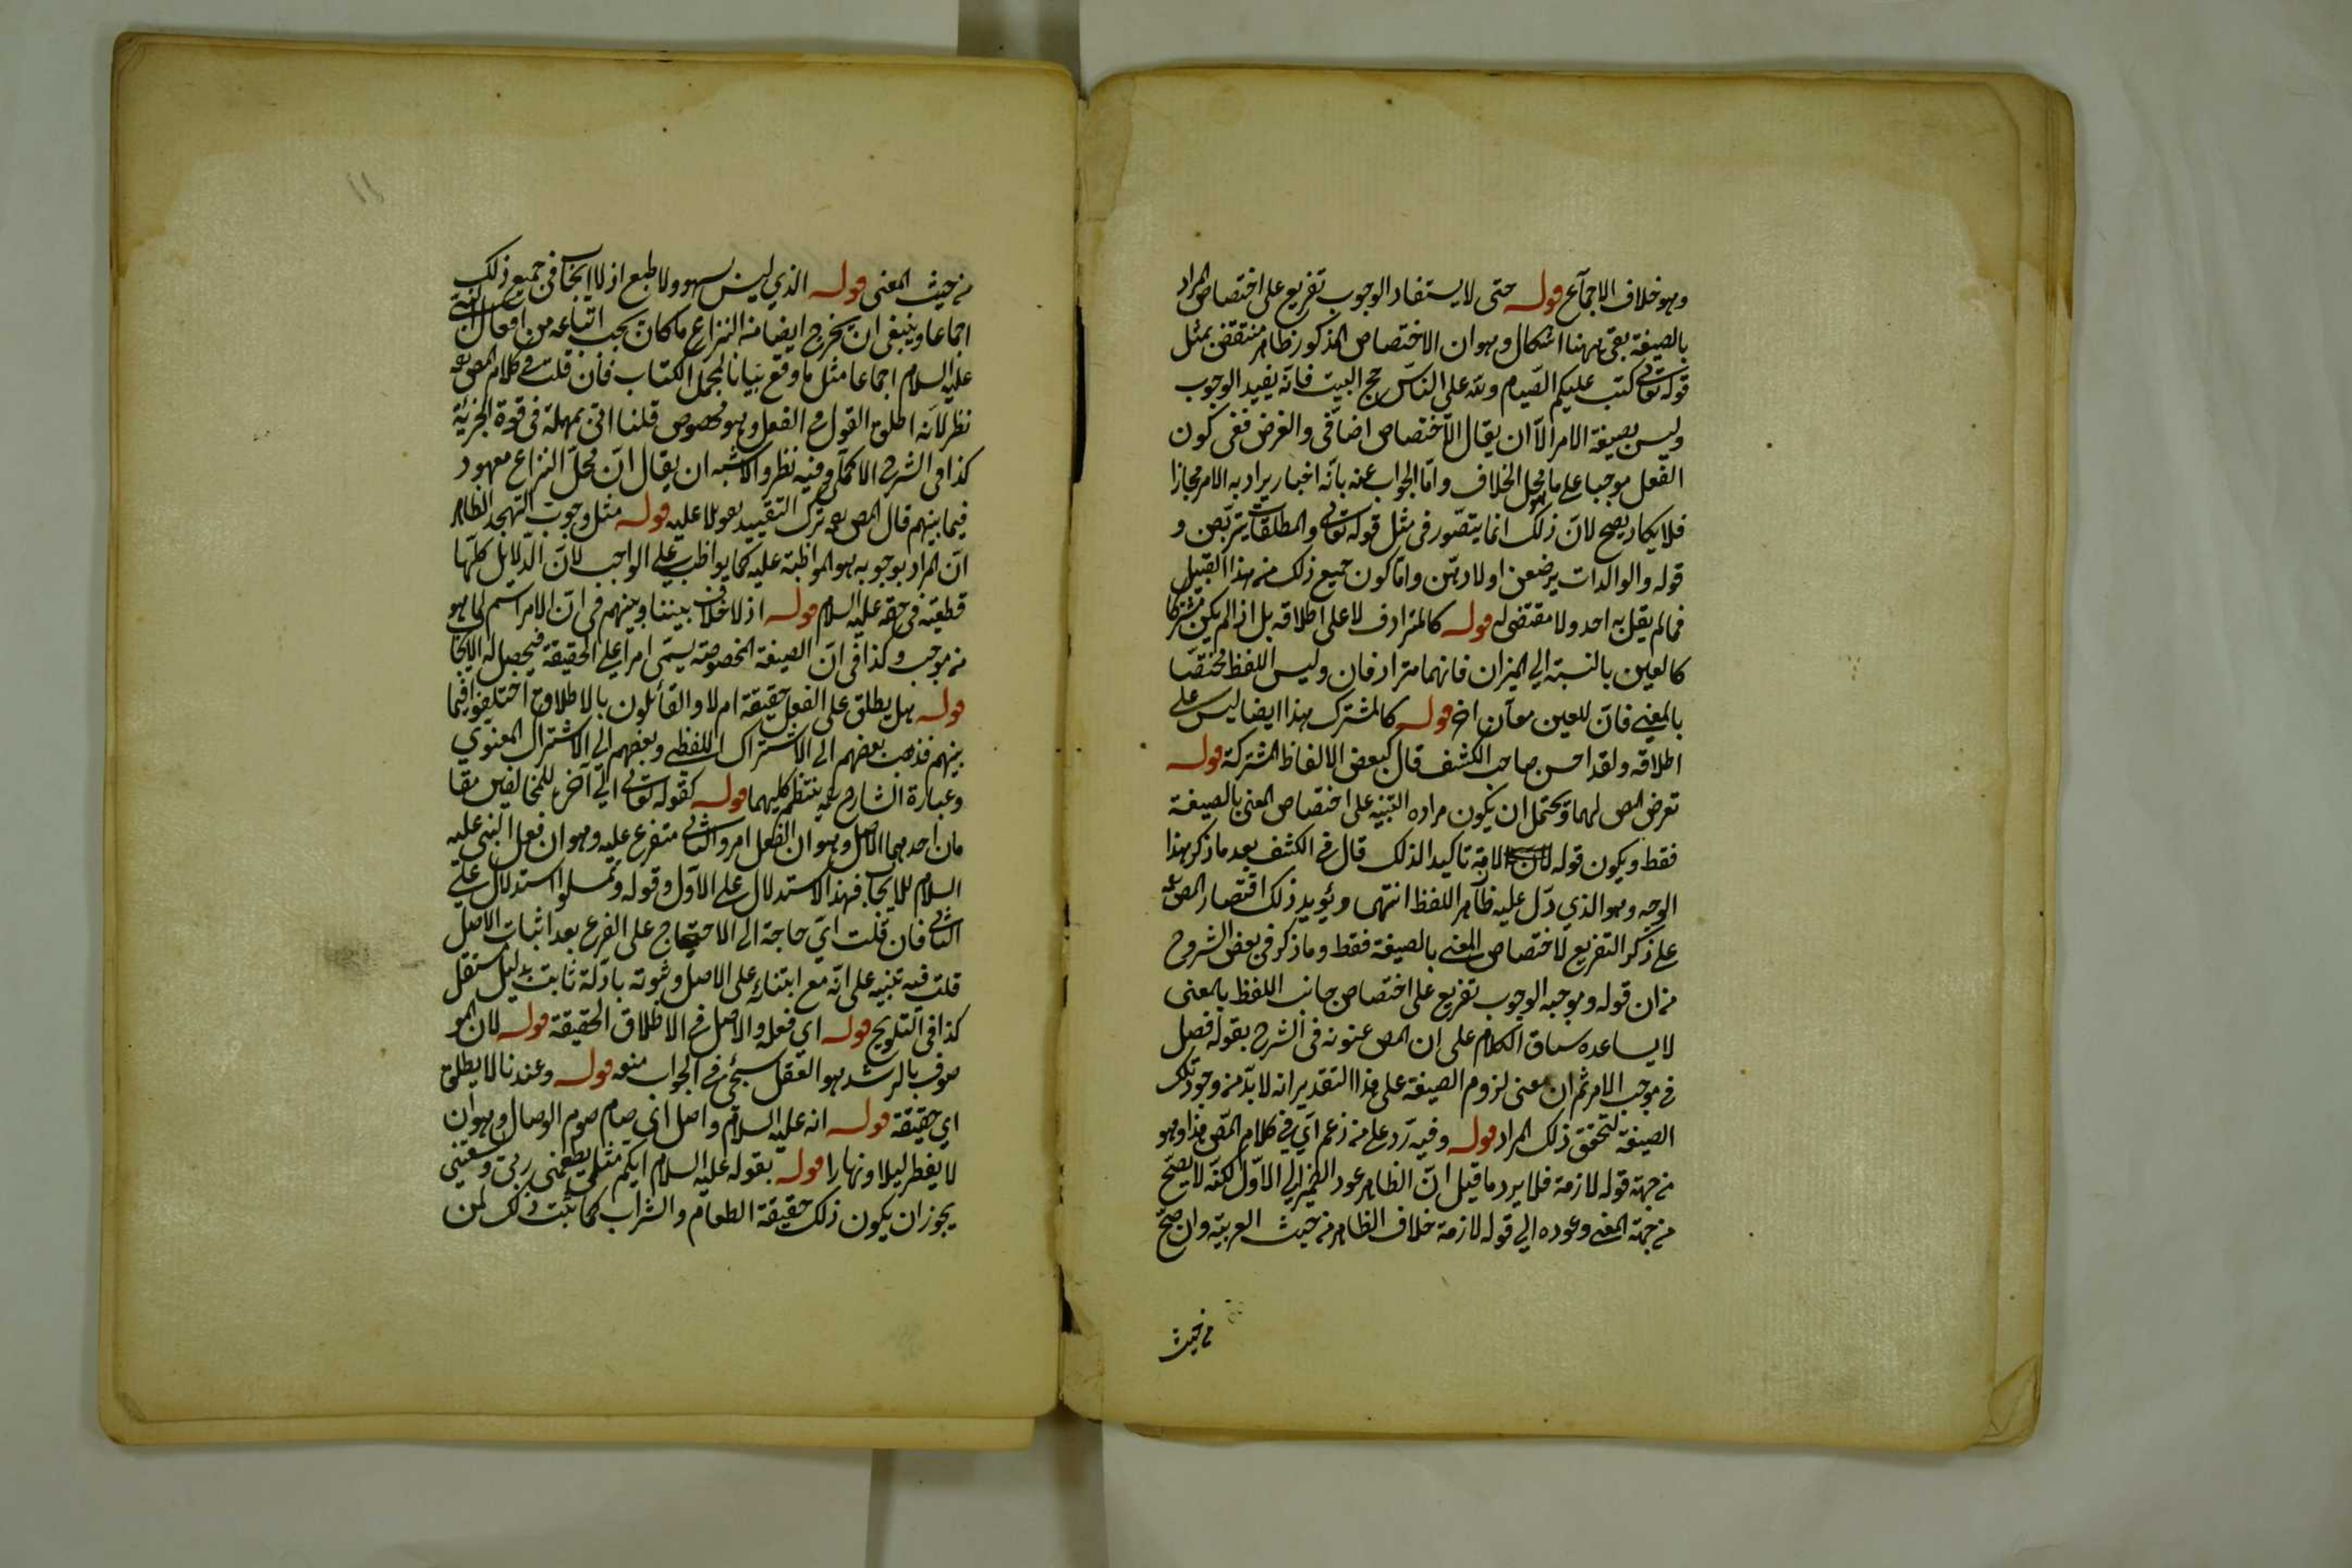 وهو خلاف الاجماع قوله حتى لا يستفاد الوجوب تفريع على اختصاص المراد
بالصيغة بقى ههنا اشكال وهو ان الاختصاص المذكور ظاهر منتقض بمثل
قوله تعالى كتب عليكم الصيام ولله على الناس حج البيت فانه يفيد الوجوب
وليس بصيغة الامر الا ان يقال الاختصاص اضافى والغرض نفى كون
الفعل موجبا على ما هو محل الخلاف واما الجواب عنه بانه اخبار يراد به الامر مجازا
فلا يكاد يصح لان ذلك انما يتصور فى مثل قوله تعالى والمطلقات يتربصن و
قوله والوالدات يرضعن اولادهن واما كون جميع ذلك من هذا القبيل
فمما لم يقل به احد ولا مقتضى له قوله كالمترادف لا على اطلاقه بل اذا لم يكن مشتركا
كالعين بالنسبة الى الميزان فانهما مترادفان وليس اللفظ مختصا
بالمعنى فان للعين معان اخر قوله كالمشترك هذا ايضا ليس على
اطلاقه ولقد احسن صاحب الكشف قال كبعض الالفاظ المشتركة قوله
تعرض المص لهما ويحتمل ان يكون مراده التنبيه على اختصاص المعنى بالصيغة
فقط ويكون قوله لازمة تاكيدا لذلك قال فى الكشف بعد ما ذكر هذا
الوجه وهو الذي دل عليه ظاهر اللفظ انتهى ويؤيد ذلك اقتصار المص
على ذكر التفريع لاختصاص المعنى بالصيغة فقط وما ذكر فى بعض الشروح
من ان قوله وموجبه الوجوب تفريع على اختصاص جانب اللفظ بالمعنى
لا يساعده سياق الكلام على ان المص عنونه فى الشرح بقوله فصل
فى موجب الامر ثم ان معنى لزوم الصيغة على هذا التقدير انه لا بد من وجود تلك
الصيغة لتحقق ذلك المراد قوله وفيه رد على من زعم اي فى كلام المص هذا وهو
من جهة قوله لازمة فلا يرد ما قيل ان الظاهر عود الضمير الى الاول لكنه لا يصح
من جهة المعنى وعوده الى قوله لازمة خلاف الظاهر من حيث العربية وان صح
من حيث
١١
من حيث المعنى قوله الذي ليس بسهو ولا طبع اذ لا ايجاب فى جميع ذلك
اجماعا وينبغى ان يخرج ايضا من النزاع ما كان يجب اتباعه من افعال النبي
عليه السلام اجماعا مثل ما وقع بيانا لمجمل الكتاب فان قلت فى كلام المص
نظر لانه اطلق القول فى الفعل وهو مخصوص قلنا اتى بمهملة فى قوة الجزئية
كذا فى الشرح الاكملى وفيه نظر والاشبه ان يقال ان محل النزاع معهود
فيما بينهم قال المص ترك التقييد تعويلا عليه قوله مثل وجوب التهجد الظاهر
ان المراد بوجوبه هو المواظبة عليه كما يواظب على الواجب لان الدلايل كلها
قطعية فى حقه عليه السلام قوله اذ لا خلاف بيننا وبينهم فى ان الامر اسم لما هو
من موجب وكذا فى ان الصيغة المخصوصة يسمى امرا على الحقيقة فيحصل له الايجاب
قوله هل يطلق على الفعل حقيقة ام لا والقائلون بالاطلاق اختلفوا فيما
بينهم فذهب بعضهم الى الاشتراك اللفظى وبعضهم الى الاشتراك المعنوي
وعبارة الشارح ينتظم كليهما قوله كقوله تعالى الى آخره للمخالفين مقا
مان احدهما الاصل وهو ان الفعل امر والثانى متفرع عليه وهو ان فعل النبى عليه
السلام للايجاب فهذا الاستدلال على الاول وقوله وتمسلوا استدلال على
الثانى فان قلت اي حاجة الى الاحتجاج على الفرع بعد اثبات الاصل
قلت فيه تنبيه على انه مع ابتنائه على الاصل وثبوته بادلة ثابت بدليل مستقل
كذا فى التلويح قوله اي فعله والاصل فى الاطلاق الحقيقة قوله لان المو
صوف بالرشد هو العقل سيجئ فى الجواب منعه قوله وعندنا لا يطلق
اي حقيقة قوله انه عليه السلام واصل اى صام صوم الوصال وهو ان
لا يفطر ليلا ونهارا قوله بقوله عليه السلام ايكم مثلى يطعمنى ربى ويسقينى
يجوز ان يكون ذلك حقيقة الطعام والشراب كما ثبت ذلك لمن